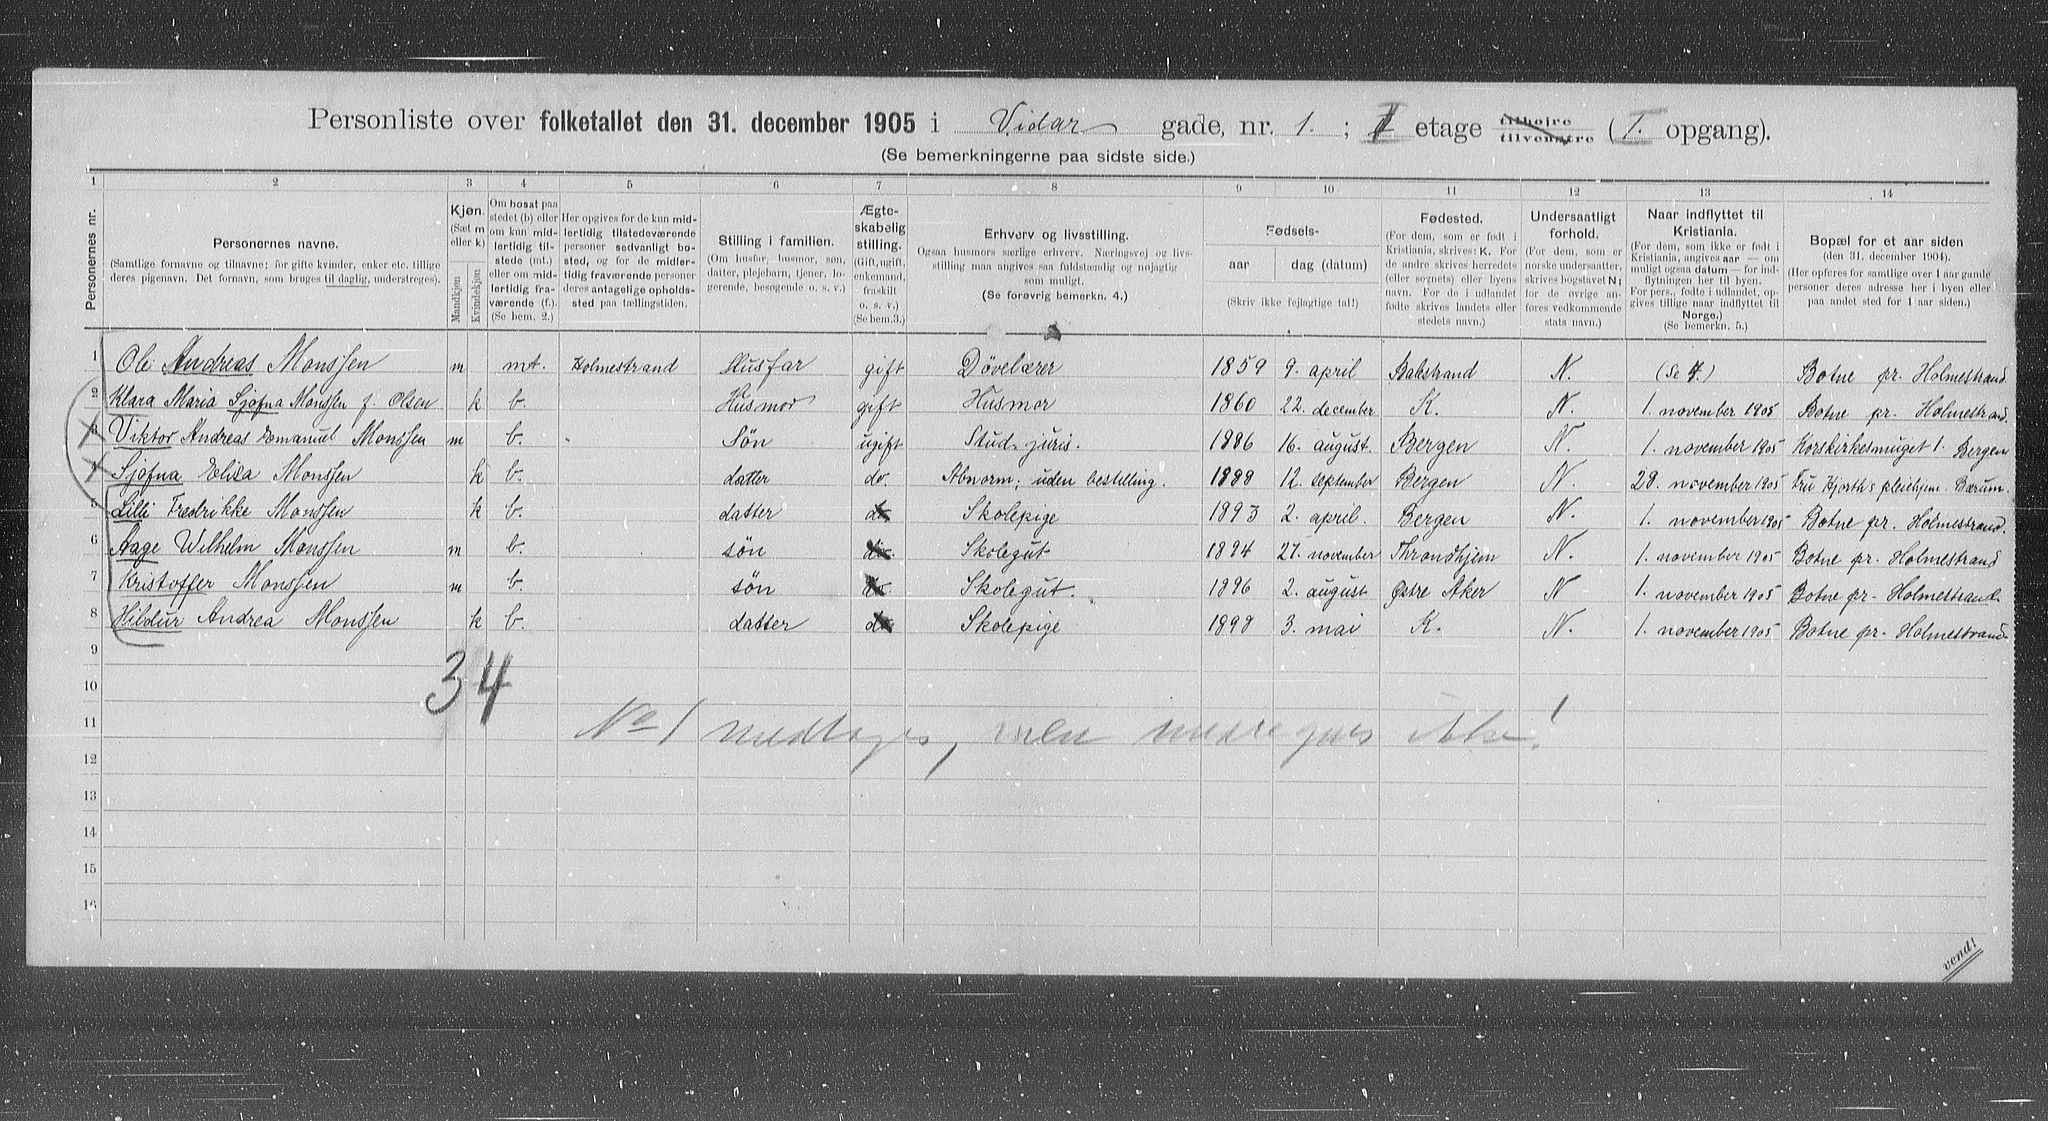 Personliste over folketallet den 31. december 1905 i Vidars gade, nr. 1. ; I etage tilhøjre tilvenstre ( I. opgang).
(Se bemerkningerne paa sidste side.)
1 2 3 4 5 6 7 8 9 10 11 12 13 14
Personernes nr.
Personernes navne.
(Samtlige fornavne og tilnavne; for gifte kvinder, enker etc. tillige deres pigenavn. Det fornavn, som bruges til daglig, understreges).
Kjøn. (Sæt m eller k) Mandkjøn Kvindekjøn
Om bosat paa stedet (b) eller om kun midlertidig tilstede (mt.) eller om midlertidig fraværende (f.) (Se bem. 2.)
Her opgives for de kun midlertidig tilstedeværende personer sedvanligt bosted, og for de midlertidig fraværende personer deres antagelige opholdssted paa tællingstiden.
Stilling i familien.
(Om husfar, husmor, søn, datter, plejebarn, tjener, logerende, besøgende o. s. v.)
Ægteskabelig stilling. (Gift, ugift, enkemand, fraskilt o. s. v.) (Se bem. 3.)
Erhverv og livsstilling.
Ogsaa husmors særlige erhverv. Næringsvej og livsstilling maa angives saa fuldstændig og nøjagtig som muligt.
(Se forøvrig bemerkn. 4.)
Fødsels-
aar dag (datum)
(Skriv ikke fejlagtige tal!)
Fødested.
(For dem, som er født i Kristiania, skrives: K. For de andre skrives herredets (eller sognets) eller byens navn. For de i udlandet fødte skrives landets eller stedets navn.)
Undersaatligt forhold.
(For dem, som er norske undersaatter, skrives bogstavet N; for de øvrige anføres vedkommende stats navn.)
Naar indflyttet til Kristiania.
(For dem, som ikke er født i Kristiania, angives aar — om muligt ogsaa datum — for indflytningen her til byen. For pers., fødte i udlandet, opgives tillige naar indflyttet til Norge.)
(Se bemerkn. 5.)
Bopæl for et aar siden
(den 31. december 1904).
(Her opføres for samtlige over 1 aar gamle personer deres adresse her i byen eller paa andet sted for 1 aar siden.)
1 Ole Andreas Monssen m mt. Holmestrand Husfar gift Døvelærer 1859 9. april N. (se 4.) Botne pr. Holmestrand
2 Klara Maria Sjøfna Monssen f. Olsen k b. Husmor gift Husmor 1860 22. december K. N. 1. november 1905 Botne pr. Holmestrand.
3 Viktor Andreas Emanuel Monssen m b. Søn ugift Stud. juris. 1886 16. august. Bergen N. 1. november 1905 Korskirkesmuget 1. Bergen
4 Sjøfna Elisa Monssen k b. datter do. Abnorm; uden bestilling. 1888 12. september Bergen N. 28. november 1905 Fru Hjorths pleiehjem. Bærum.
5 Lilli Fredrikke Monssen k b. datter do. Skolepige 1893 2. april. Bergen N. 1. november 1905 Botne pr. Holmestrand.
6 Aage Wilhelm Monssen m b. søn do. Skolegut 1894 27. november Throndhjem N. 1. november 1905 Botne pr. Holmestrand
7 Kristoffer Monssen m b. søn do Skolegut. 1896 2. august Østre Aker N 1. november 1905 Botne pr. Holmestrand
8 Hildur Andrea Monssen k b. datter do Skolepige 1898 3. mai K. N. 1. november 1905 Botne pr. Holmestrand
9
34
10
11 No 1 medtages, men medregnes ikke!
12
13
14
15
16
vend!